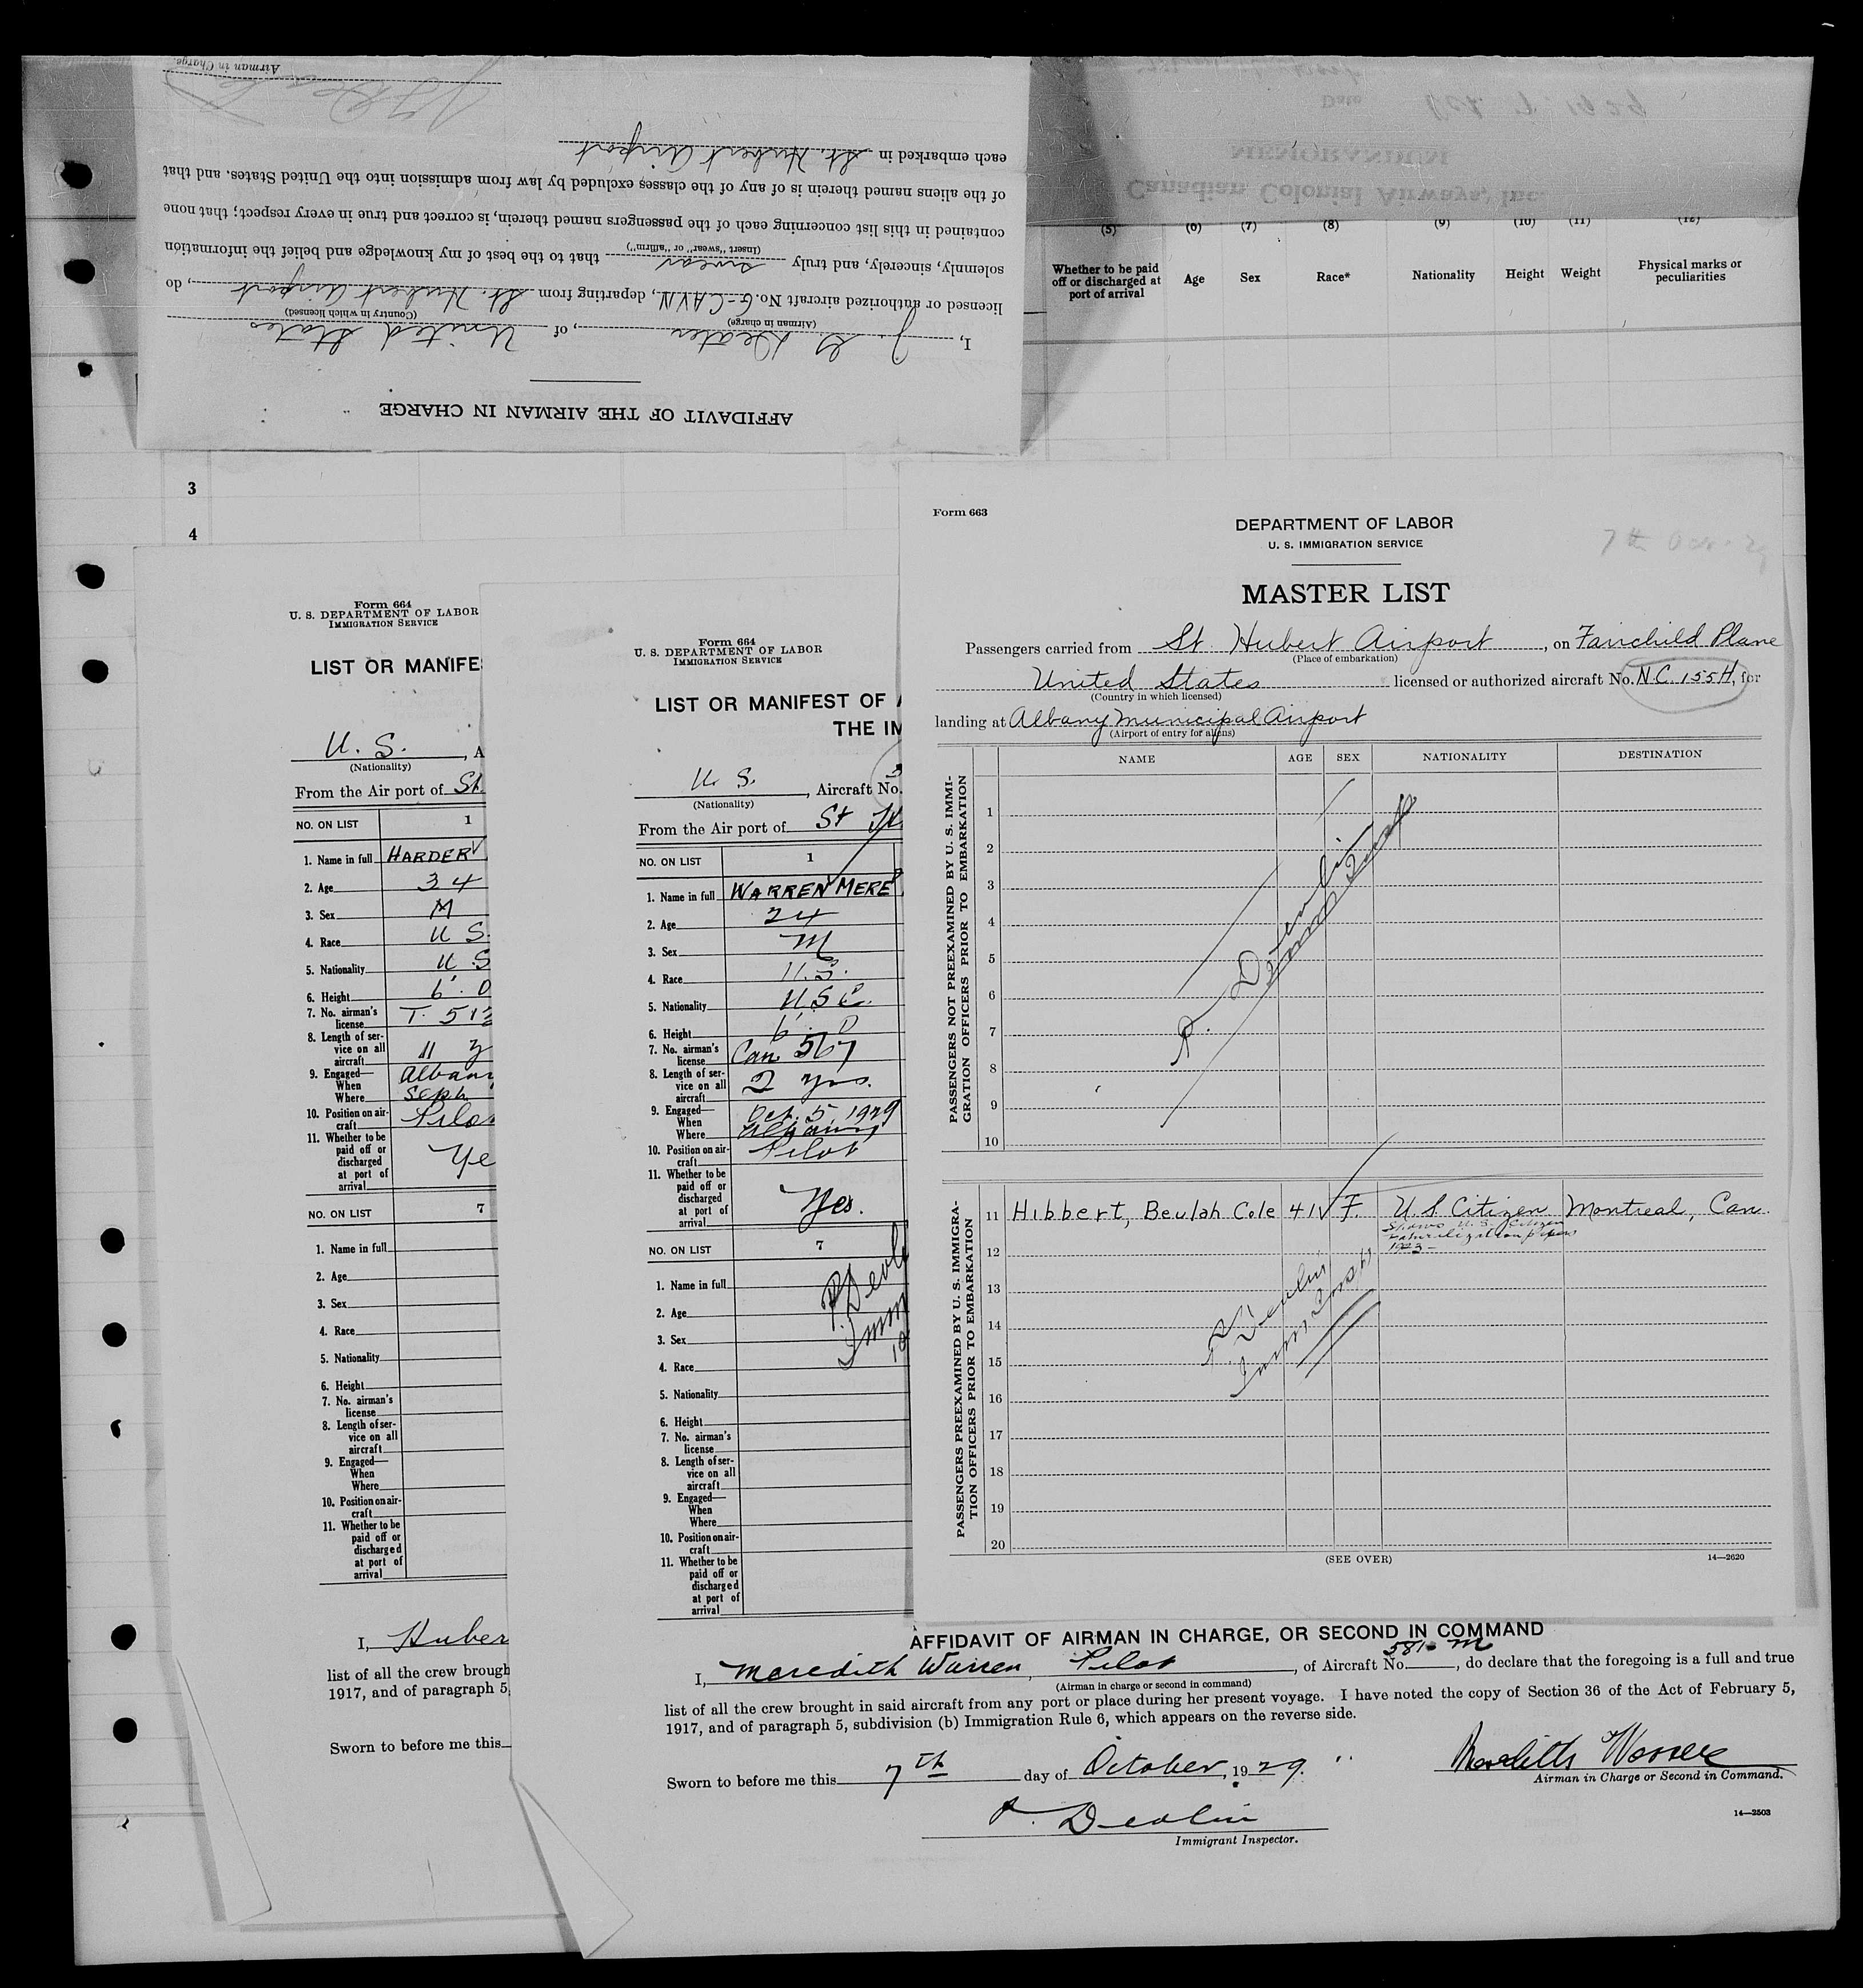 AFFIDAVIT OF THE AIRMAN IN CHARGE
I, J. G. Heater, of United States
(Airman in charge) (Country in which licensed)
licensed or authorized aircraft No. G-CAVN, departing from St. Hubert Airport, do
solemnly, sincerely, and truly swear that to the best of my knowledge and belief the information
(Insert "swear" or "affirm")
contained in this list concerning each of the passengers named therein, is correct and true in every respect; that none
of the aliens named therein is of any of the classes excluded by law from admission into the United States. and that
each embarked in St. Hubert Airport
Airman in Charge.
Date
MEMORANDUM
Canadian Colonial Airways, Inc.
(5) (6) (7) (8) (9) (10) (11) (12)
Whether to be paid off or discharged at port of arrival Age Sex Race* Nationality Height Weight Physical marks or peculiarities
3
4
Form 664
U. S. DEPARTMENT OF LABOR
IMMIGRATION SERVICE
LIST OR MANIFE
U. S. , A
(Nationality)
From the Air port of St.
NO. ON LIST 1
1. Name in full HARDER
2. Age 34
3. Sex M
4. Race U S.
5. Nationality U S
6. Height 6'. 0
7. No. airman's license T. 513
8. Length of service on all aircraft 11 y
9. Engaged—
When Alban
Where Sept.
10. Position on aircraft Pilo
11. Whether to be paid off or discharged at port of arrival Ye
NO. ON LIST 7
1. Name in full
2. Age
3. Sex
4. Race
5. Nationality
6. Height
7. No. airman's license
8. Length of service on all aircraft
9. Engaged—
When
Where
10. Position on aircraft
11. Whether to be paid off or discharged at port of arrival
I, Huber
list of all the crew brough
1917, and of paragraph 5,
Sworn to before me this
Form 664
U. S. DEPARTMENT OF LABOR
IMMIGRATION SERVICE
LIST OR MANIFEST OF A
THE IM
U. S. , Aircraft No.
(Nationality)
From the Air port of St Hu
NO. ON LIST 1
1. Name in full WARREN MERED
2. Age 24
3. Sex M
4. Race U.S.
5. Nationality USC.
6. Height 6'. 0
7. No. airman's license Can 567
8. Length of service on all aircraft 2 yrs.
9. Engaged—
When Oct. 5, 1929
Where Albany
10. Position on aircraft Pilot
11. Whether to be paid off or discharged at port of arrival Yes.
NO. ON LIST 7
1. Name in full
2. Age
3. Sex
4. Race
5. Nationality
6. Height
7. No. airman's license
8. Length of service on all aircraft
9. Engaged—
When
Where
10. Position on aircraft
11. Whether to be paid off or discharged at port of arrival
P. Devl
Imm
Form 663
DEPARTMENT OF LABOR
U. S. IMMIGRATION SERVICE
7th Oct. 29
MASTER LIST
Passengers carried from St. Hubert Airport, on Fairchild Plane
(Place of embarkation)
United States licensed or authorized aircraft No. N.C. 155H, for
(Country in which licensed)
landing at Albany Municipal Airport
(Airport of entry for aliens)
NAME AGE SEX NATIONALITY DESTINATION
PASSENGERS NOT PREEXAMINED BY U. S. IMMIGRATION OFFICERS PRIOR TO EMBARKATION
1
2
3
4
5
6
7
8
9
10
P. Devlin
Immr Insp
PASSENGERS PREEXAMINED BY U. S. IMMIGRATION OFFICERS PRIOR TO EMBARKATION
11 Hibbert, Beulah Cole 41 F. U. S Citizen Montreal, Can.
Shows U. S. Citizen
naturalization papers
1923 -
12
13
14
15
16
17
18
19
20
P. Devlin
Immr Inspt
(SEE OVER) 14—2620
AFFIDAVIT OF AIRMAN IN CHARGE, OR SECOND IN COMMAND
I, Meredith Warren, Pilot, of Aircraft No. 581-M, do declare that the foregoing is a full and true
(Airman in charge or second in command)
list of all the crew brought in said aircraft from any port or place during her present voyage. I have noted the copy of Section 36 of the Act of February 5,
1917, and of paragraph 5, subdivision (b) Immigration Rule 6, which appears on the reverse side.
Sworn to before me this 7th day of October, 1929.
Meredith Warren
Airman in Charge or Second in Command.
P. Devlin
Immigrant Inspector.
14—2503